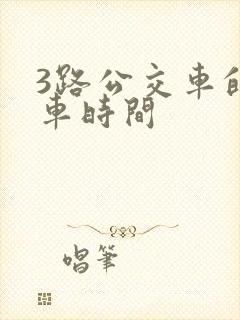 3路公交車的
車時間
唱筆